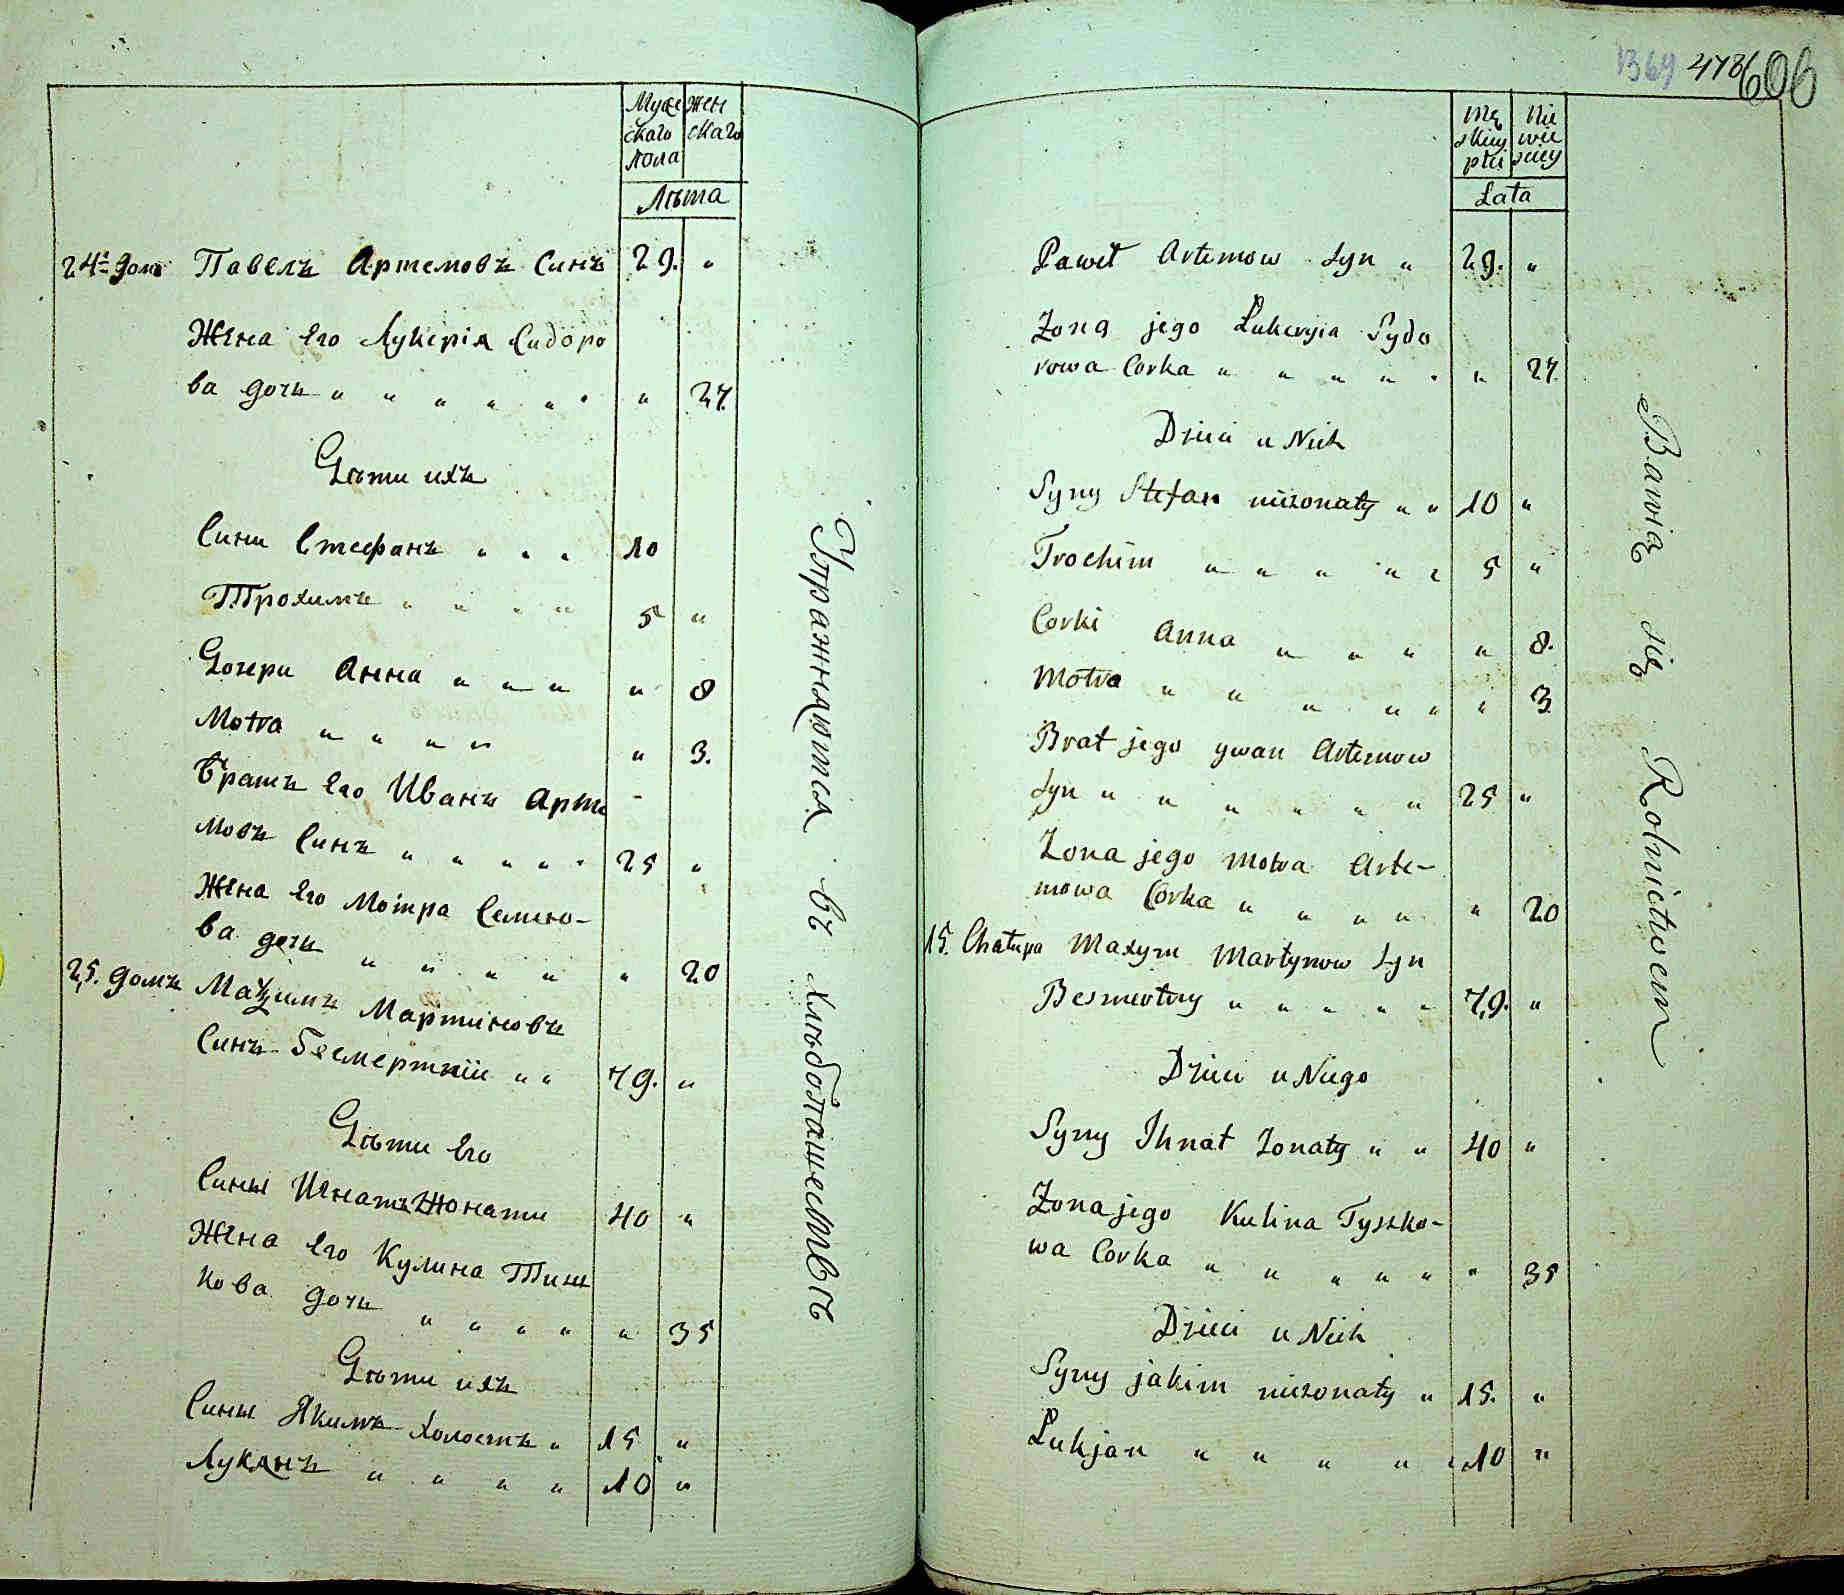 Муже
скаго
пола
жен
скаго
Лѣта
24й домъ Павелъ Артемовъ Синъ 29. "
Жена его Лукерія Сидоро
ва дочь " " " " " " " 27.
Дѣти ихъ
Сини Стефанъ " " " 10
Трохимъ " " " " 5 "
Дочери Анна " " " " 8
Motra " " " " " 3.
Братъ его Иванъ Арте
мовъ Синъ " " " " " 25 "
Жена его Мотра Семено-
ва дочь " " " " " 20
25. домъ Мазимъ Мартиновъ
Синъ Бесмертній " " 79. "
Дѣти его
Сины Игнатъ Жонати 40 "
Жена его Кулина Тиш
кова дочь " " " " " 35
Дѣти ихъ
Сины Якимъ Холостъ " 15 "
Луканъ " " " " 10 "
Упражняются въ хлѣбопашествѣ
1369 478 606
Mę
skiey
płci
Nie
wie
sciey
Lata
Paweł Artemow Syn " 29. "
Zona jego Łukeryia Sydo
rowa Corka " " " " " " 27.
Dzieci u Nich
Syny Stefan niezonaty " " 10 "
Trochim " " " " " 5 "
Corki Anna " " " " 8.
Motra " " " " " " 3
Brat jego ywan Artemow
Syn " " " " " " 25 "
Zona jego Motra Arte-
mowa Corka " " " " " 20
15. Chałupa Maxym Martynow Syn
Besmertny " " " " " 79. "
Dzieci u Niego
Syny Ihnat Zonaty " " 40 "
Zona jego Kulina Tyszko-
wa Corka " " " " " " 35
Dzieci u Nich
Syny jakim niezonaty " 15. "
Łukjan " " " " " 10 "
Bawią się Rolnictwem